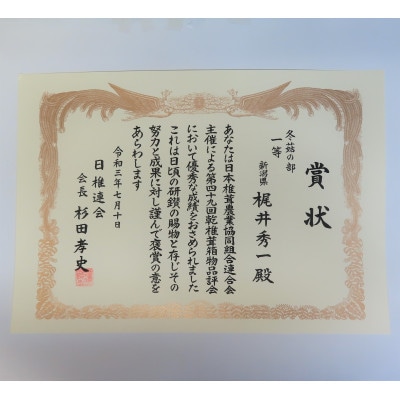 賞状
冬菇の部
一等
新潟県 梶井秀一殿
あなたは日本椎茸農業協同組合連合会
主催による第四十九回乾椎茸箱物品評会
において優秀な成績をおさめられました
これは日頃の研鑽の賜物と存じその
努力と成果に対し謹んで褒賞の意を
あらわします
令和三年七月十日
日椎連会
会長 杉田孝史